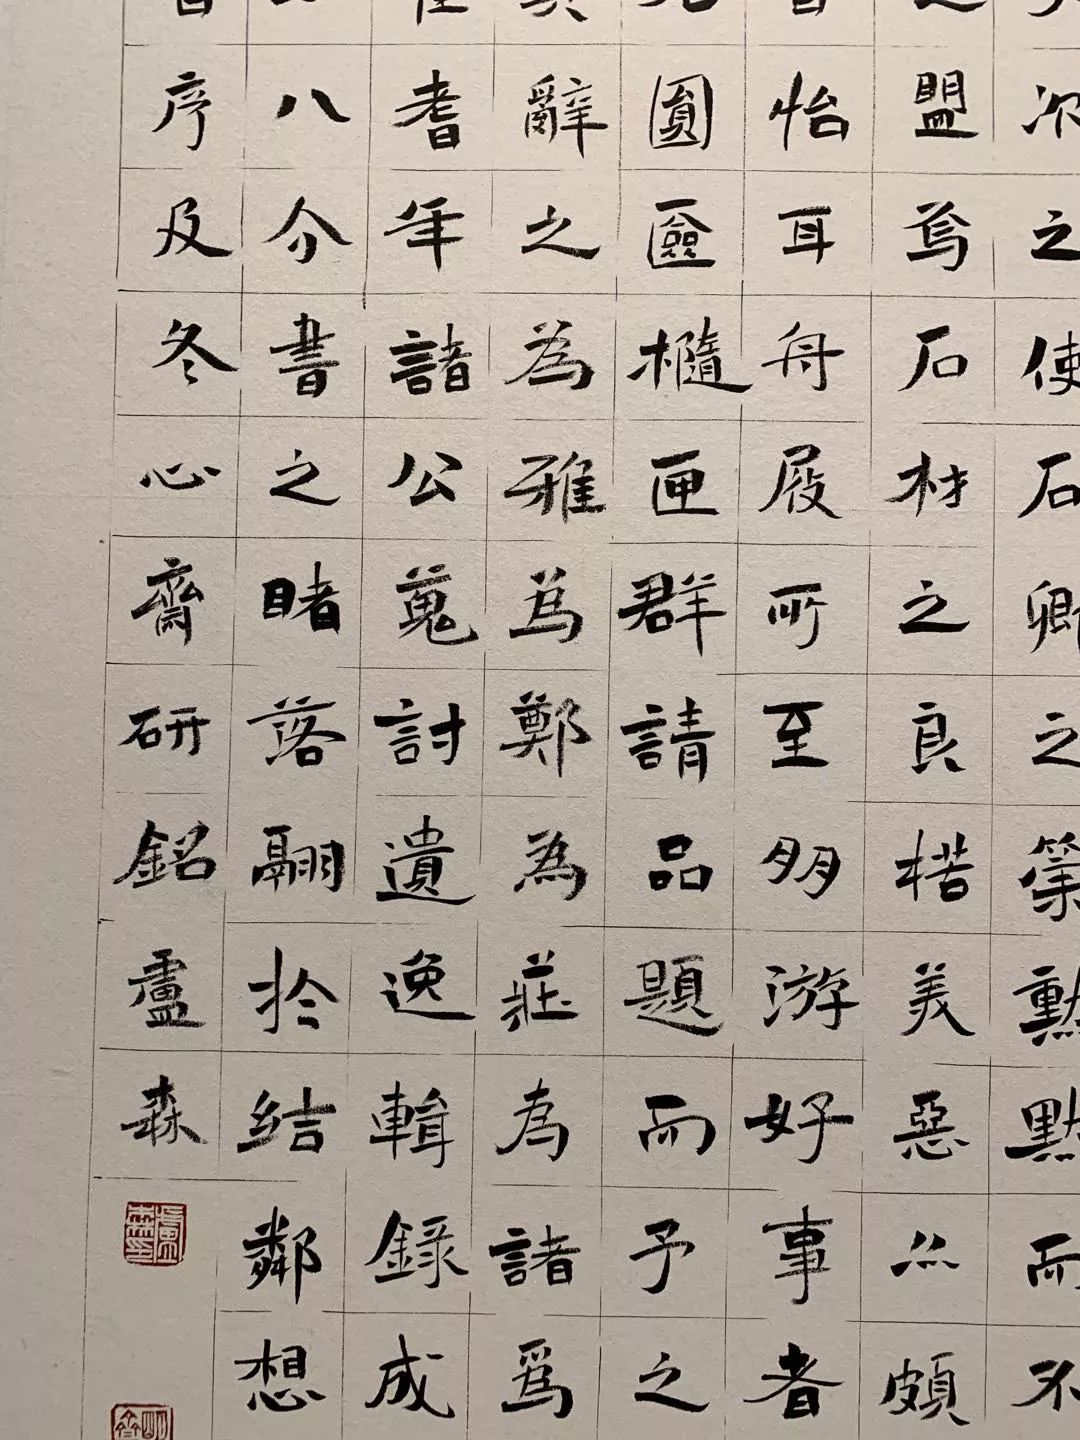 次之使石卿之策勲點而不
之盟焉石材之良楛美惡亦頗
怡耳舟屐所至多游好事者
圓匳橢匣群請品題而予之
辭之為雅為鄭為莊為諸為
耆年諸公蒐討遺逸輯錄成
八介書之睹落翮於結鄰想
序及冬心齋研銘盧森